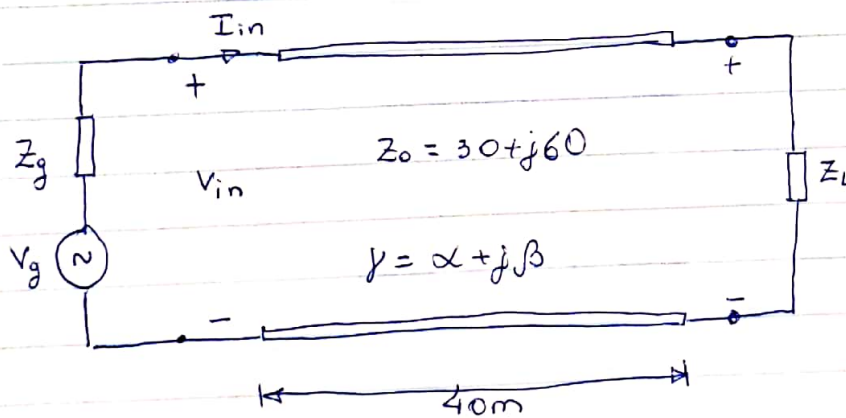 Iin
+ +
Zg Z₀ = 30+j60 ZL
Vin
Vg ~ γ = α + jβ
- -
40m